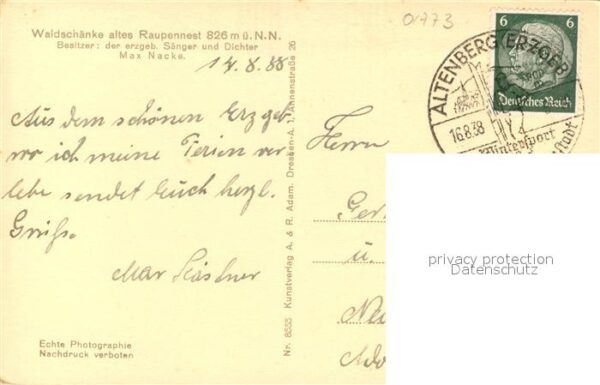 Waldschänke altes Raupennest 826 m ü. N. N.
Besitzer: der erzgeb. Sänger und Dichter
Max Nacke.
14.8.38
Aus dem schönen Erzgeb.
wo ich meine Ferien ver
lebe sendet Euch herzl.
Grüße.
Max Kästner
Echte Photographie
Nachdruck verboten
Nr. 8555 Kunstverlag A. & R. Adam, Dresden-A. 1, Annenstraße 26
01773
6 6
Deutsches Reich
ALTENBERG (ERZGEB
16.8.38
Wintersport
Herrn
u.
privacy protection
Datenschutz